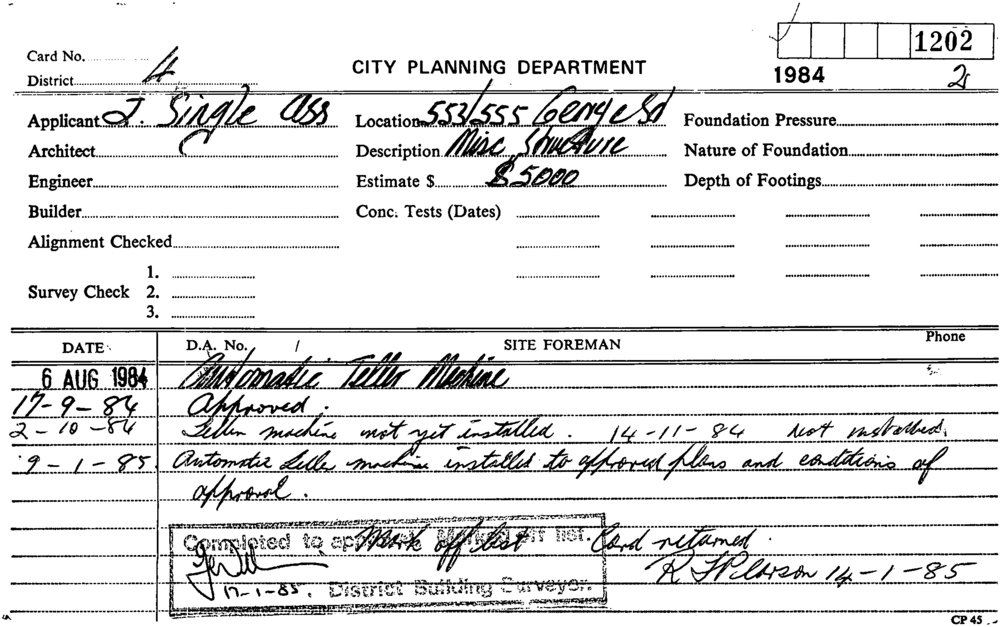 1202
Card No.
District 4
CITY PLANNING DEPARTMENT
1984 2
Applicant J. Single Ass Location 553/555 George St Foundation Pressure
Architect Description Misc Structure Nature of Foundation
Engineer Estimate $ $5000 Depth of Footings
Builder Conc. Tests (Dates)
Alignment Checked
1.
Survey Check 2.
3.
DATE D.A. No. / SITE FOREMAN Phone
6 AUG 1984 Automatic Teller Machine
17-9-84 Approved.
2-10-84 Teller machine not yet installed. 14-11-84 Not installed.
9-1-85 Automatic Teller machine installed to approved plans and conditions of
approval.
Completed to approval. Marked off list. Mark off list Card returned.
R J Pearson 14-1-85
17-1-85. District Building Surveyor.
CP 45